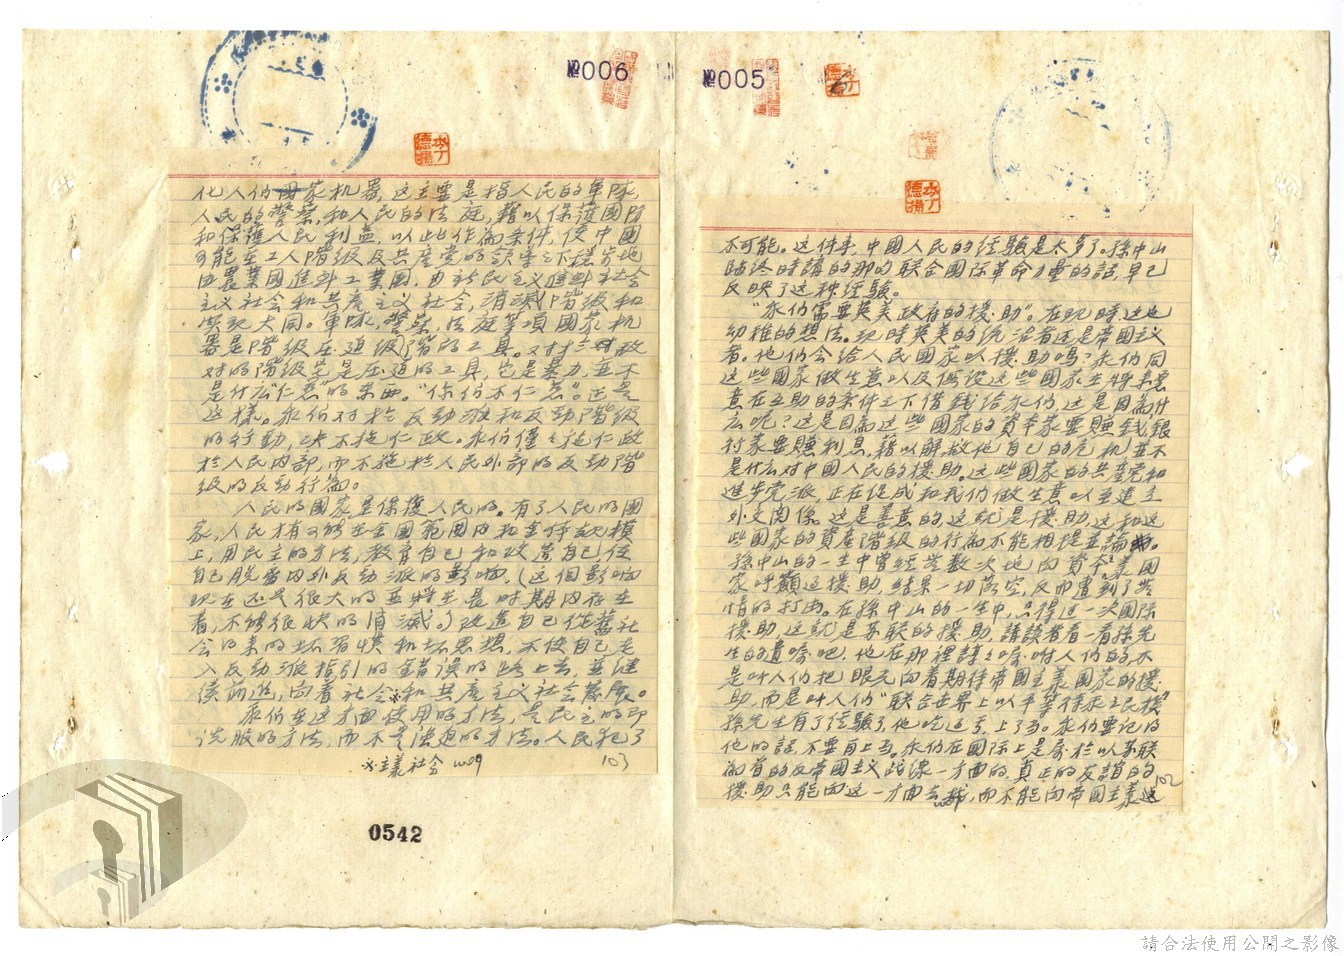 №006
№005
李丁
德揚
李丁
德揚
化人们国家机器,这主要是指人民的軍隊,
人民的警察,和人民的法庭,藉以保護國防
和保護人民利益,以此作為条件,使中國
可能在工人階級及共產党的領導之下穩步地
由農業國進到工業國,由新民主义進到社会
主义社会和共產主义社会,消滅階級和
实現大同。軍隊,警察,法庭等項國家机
器是階級压迫級階的工具。对於敌
对的階級它是压迫的工具,它是暴力,並不
是什么"仁慈"的东西。"你们不仁慈"。正是
这樣。我们对於反动派和反动階級
的行動,决不施仁政。我们僅々施仁政
於人民内部,而不施於人民外部的反动階
級的反动行為。
人民的國家是保護人民的。有了人民的國
家,人民才有可能在全國範囲内和全体規模
上,用民主的方法,教育自己和改造自己使
自己脱离内外反动派的影响,(这個影响
現在还是很大的並將在長時期内存在
着,不能很快的消滅。)改造自己從舊社
会得来的坏習慣和坏思想,不使自己走
入反动派指引的錯誤的路上去,並継
續前進,向着社会和共產主义社会發展。
我们在这方面使用的方法,是民主的即
说服的方法,而不是强迫的方法。人民犯了
主義社会
103
0542
不可能。这件事,中國人民的經驗是太多了。孫中山
臨終時講的那句联合國际革命力量的話,早已
反映了这种經驗。
"我们需要英美政府的援助"。在現時这也
幼稚的想法。現時英美的统治者还是帝國主义
者。他们会給人民國家以援助吗?我们同
这些國家做生意以及假設这些國家在將来愿
意在互助的条件之下借錢給我们,这是因為什
么呢?这是因為这些國家的資本家要賺錢,銀
行家要賺利息,藉以解救他自己的危机並不
是什么对中國人民的援助。这些國家的共產党和
進步党派,正在促成和我们做生意以至建立
外交関係。这是善意的,这就是援助,这和这
些國家的資產階級的行為不能相提並論。
孫中山的一生中曾經無数次地向資本主義國
家呼籲过援助,結果一切落空,反而遭到了無
情的打击。在孫中山的一生中,只得过一次國际
援助,这就是苏联的援助,請読者看一看孫先
生的遺囑吧,他在那裡諄々囑咐人们的,不
是叫人们把眼光向着期待帝國主義國家的援
助,而是叫人们"联合世界上以平等待我之民族"
孫先生有了經驗了,他吃过亏,上了当。我们要記得
他的話,不要再上当。我们在國际上是屬於以苏联
為首的反帝國主义战線一方面的,真正的友誼的
援助只能向这一方面去找,而不能向帝國主義
102
請合法使用公開之影像